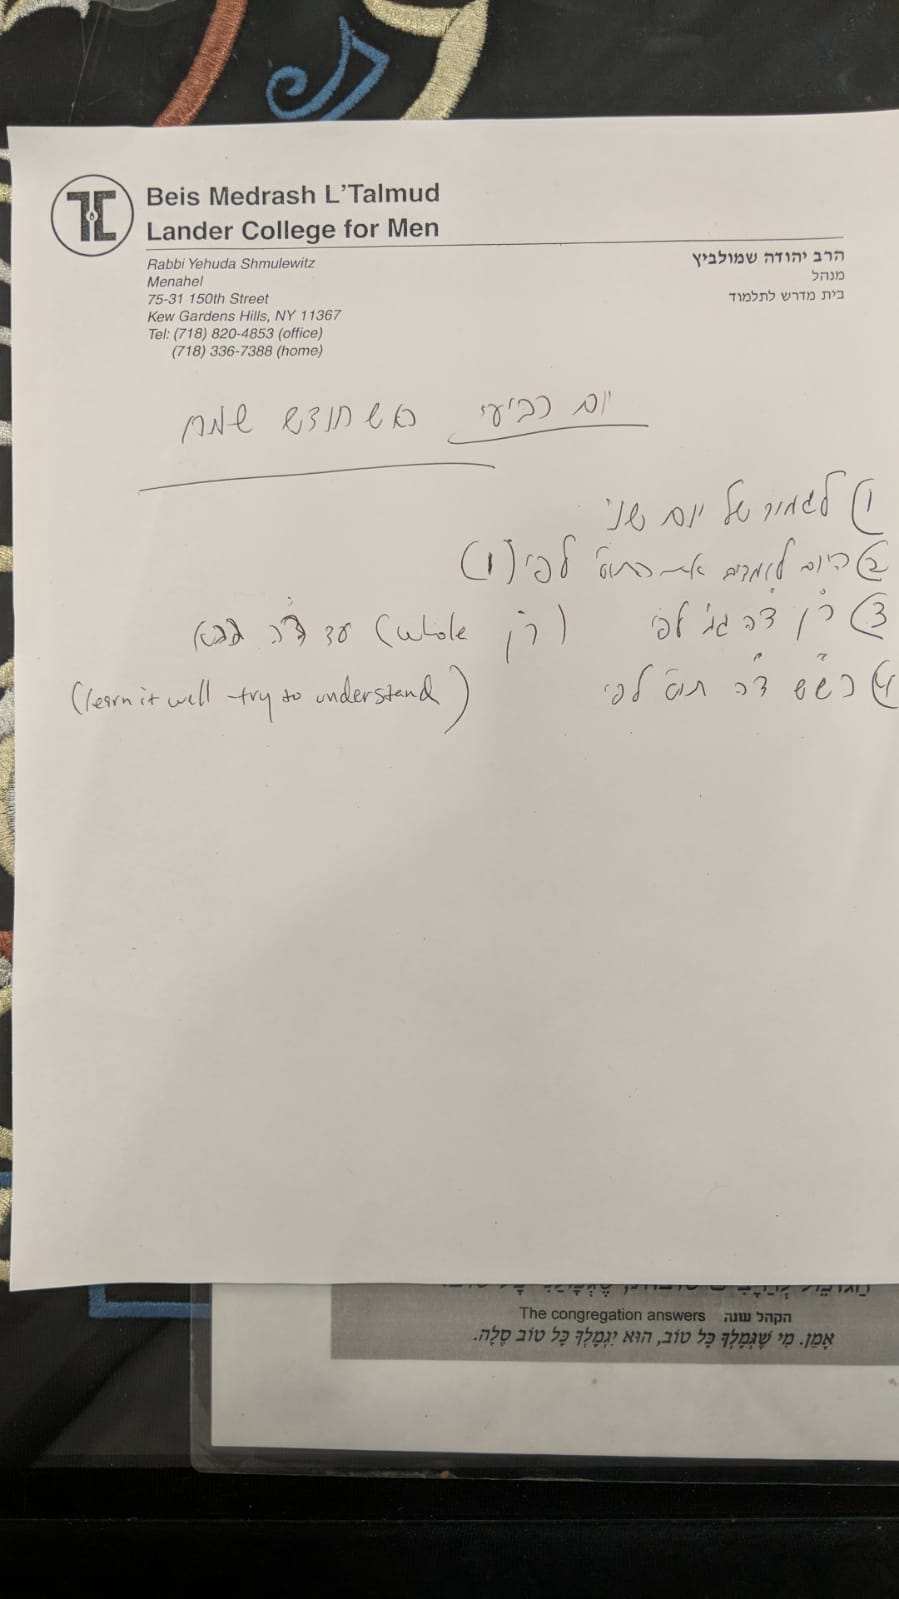 Beis Medrash L'Talmud
Lander College for Men
Rabbi Yehuda Shmulewitz
Menahel
75-31 150th Street
Kew Gardens Hills, NY 11367
Tel: (718) 820-4853 (office)
(718) 336-7388 (home)
הרב יהודה שמולביץ
מנהל
בית מדרש לתלמוד
יום רביעי ראש חודש
1) לגמור של יום שני
2) היום לומדים את התוס' לפי (1)
3) ר"ן ד"ה גג לפי (ר"ן whole) עד ד"ה
4) רש"ש ד"ה תוס' לפי (learn it well - try to understand)
The congregation answers הקהל עונה
אָמֵן. מִי שֶׁגְּמָלְךָ כָּל טוֹב, הוּא יִגְמָלְךָ כָּל טוֹב סֶלָה.